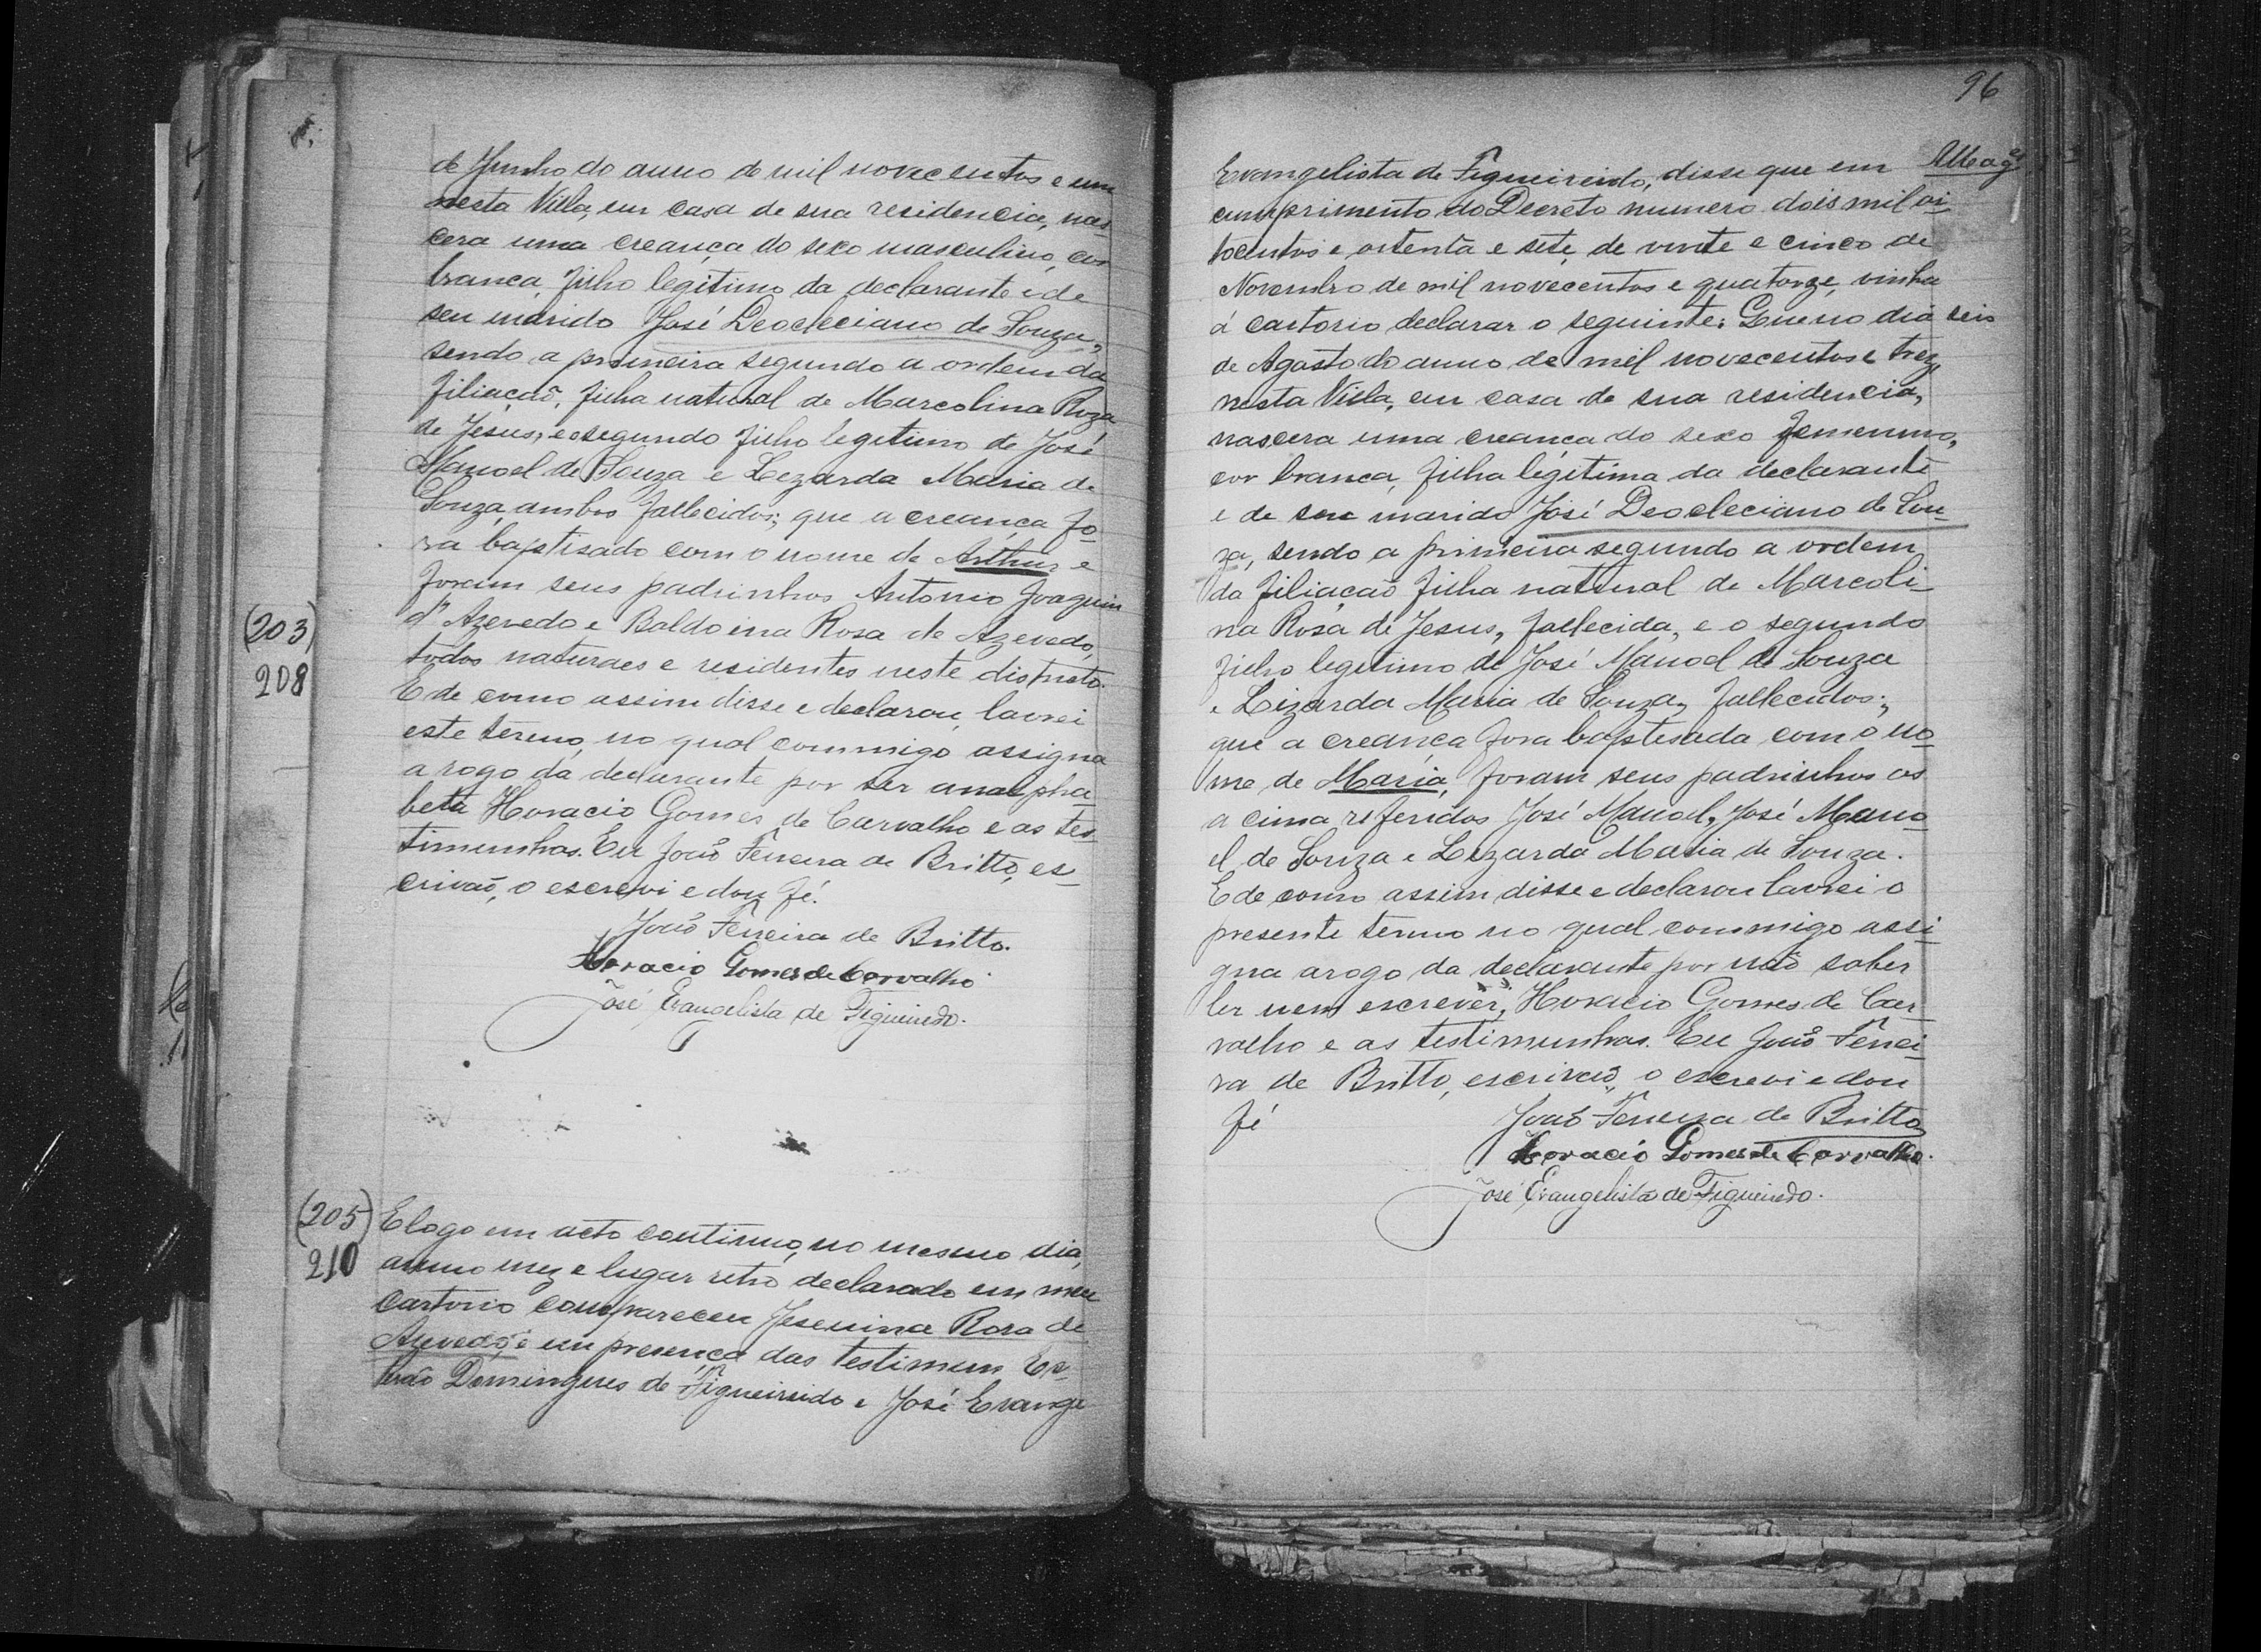 de Junho do anno de mil novecentos e um
nesta Villa, em casa de sua residencia, nas-
cera uma creança do sexo masculino, cor
branca, filho legitimo da declarante e de
seu marido José Deocleciano de Souza,
sendo a primeira segundo a ordem da
filiação, filha natural de Marcolina Roza
de Jesus, e o segundo filho legitimo de José
Manoel de Souza e Lezarda Maria de
Souza, ambos fallecidos; que a creança fo-
ra baptisado com o nome de Arthur e
foram seus padrinhos Antonio Joaquim
d'Azevedo e Baldoina Rosa de Azevedo,
todos naturaes e residentes neste districto.
E de como assim disse e declarou, lavrei
este termo, no qual commigo assigna
a rogo da declarante por ser analpha-
beta Horacio Gomes de Carvalho e as tes-
timunhas. Eu João Ferreira de Britto, es-
crivão, o escrevi e dou fé.
João Ferreira de Britto.
Horacio Gomes de Carvalho
José Evangelista de Figueiredo.
(203)
208
(205)
210
E logo em acto continuo, no mesmo dia,
anno mez e lugar retro declarado em meu
cartorio compareceu Jesuina Rosa de
Azevedo, e em presença das testimun Es-
tevão Domingues de Figueireido e José Evange
96
Evangelista de Figueireido, disse que em
cumprimento do Decreto numero dois mil oi-
tocentos e oitenta e sete, de vinte e cinco de
Novembro de mil novecentos e quatorze, vinha
á cartorio declarar o seguinte: Que no dia seis
de Agosto do anno de mil novecentos e treze
nesta Villa, em casa de sua residencia,
nascera uma creança do sexo femenino,
cor branca, filha legitima da declarante
e de seu marido José Deocleciano de Sou-
za, sendo a primeira segundo a ordem
da filiação filha natural de Marcoli-
na Rosa de Jesus, fallecida, e o segundo
filho legitimo de José Manoel de Souza
e Lizarda Maria de Souza, fallecidos;
que a creança fora baptesada com o no-
me de Maria, foram seus padrinhos os
a cima referidos José Manoel, José Mano-
el de Souza e Lizarda Maria de Souza.
E de como assim disse e declarou lavrei o
presente termo no qual commigo assi-
gna arogo da declarante por não saber
ler nem escrever, Horacio Gomes de Car-
valho e as testimunhas. Eu João Ferrei-
ra de Britto, escrivão, o escrevi e dou
fé
João Ferreira de Britto
Horacio Gomes de Carvalho.
José Evangelista de Figueiredo.